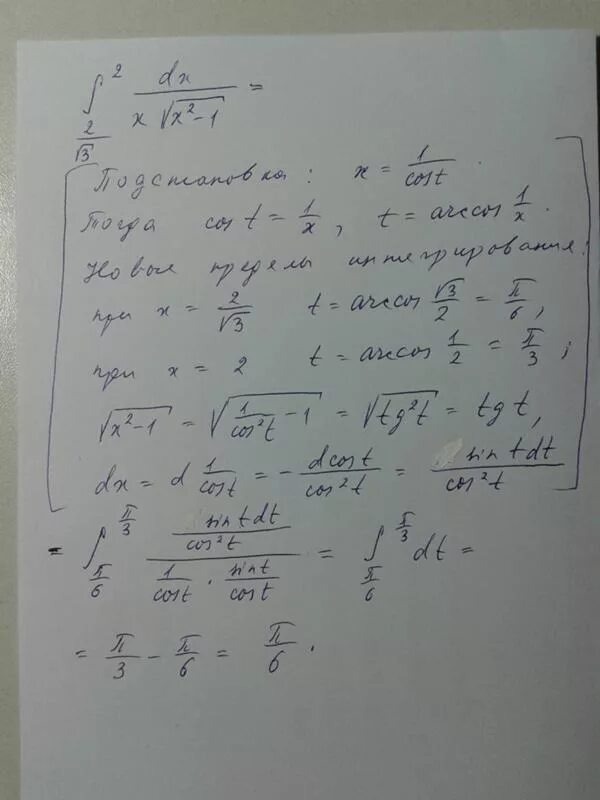 ∫_{2/√3}^{2} dx / (x √(x²-1)) =
Подстановка: x = 1/cost.
Тогда cos t = 1/x, t = arccos 1/x.
Новые пределы интегрирования:
при x = 2/√3 t = arccos √3/2 = π/6,
при x = 2 t = arccos 1/2 = π/3;
√(x²-1) = √(1/cos²t - 1) = √(tg²t) = tg t,
dx = d 1/cost = - dcost/cos²t = sin t dt/cos²t
= ∫_{π/6}^{π/3} (sint dt/cos²t) / (1/cost · sint/cost) = ∫_{π/6}^{π/3} dt =
= π/3 - π/6 = π/6.